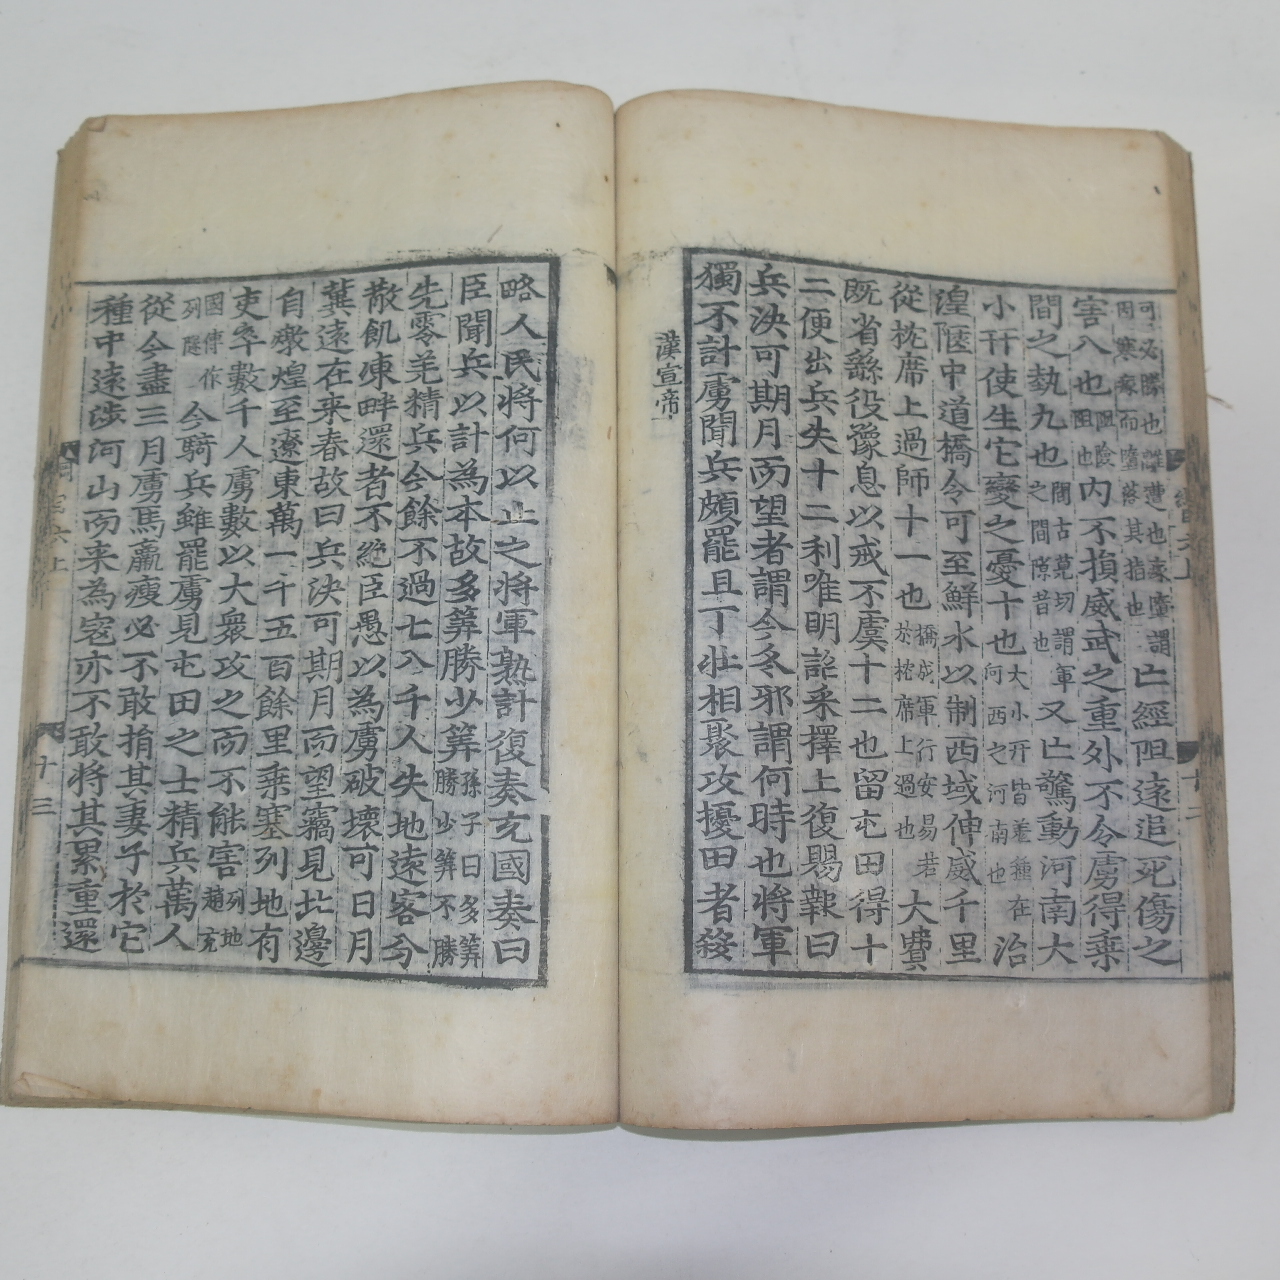 可必勝也離遭也瘃墮謂
因寒瘃而墮落其指也
亡經阻遠追死傷之
害八也
阻險
阻也
內不損威武之重外不令虜得乗
間之埶九也
間古莧切謂軍
之間隙昔也
又亡驚動河南大
小幵使生它變之憂十也
大小幵皆羌種在
河西之河南也
治
湟陿中道橋令可至鮮水以制西域伸威千里
從枕席上過師十一也
橋成軍行安易若
於枕席上過也
大費
旣省繇役豫息以戒不虞十二也留屯田得十
二便出兵失十二利唯明詔采擇上復賜報曰
兵決可期月而望者謂今冬邪謂何時也將軍
獨不計虜聞兵頗罷且丁壯相聚攻擾田者殺
漢宣帝
略人民將何以止之將軍熟計復奏充國奏曰
臣聞兵以計為本故多筭勝少筭
孫子曰多筭
勝少筭不勝
先零羌精兵今餘不過七八千人失地遠客分
散飢凍畔還者不絶臣愚以為虜破壞可日月
冀遠在来春故曰兵決可期月而望竊見北邊
自燉煌至遼東萬一千五百餘里乗塞列地有
吏卒數千人虜數以大衆攻之而不能害
列地
趙充
國傳作
列隧
今騎兵雖罷虜見屯田之士精兵萬人
從今盡三月虜馬羸瘦必不敢捐其妻子於它
種中遠涉河山而来為寇亦不敢將其累重還
十三